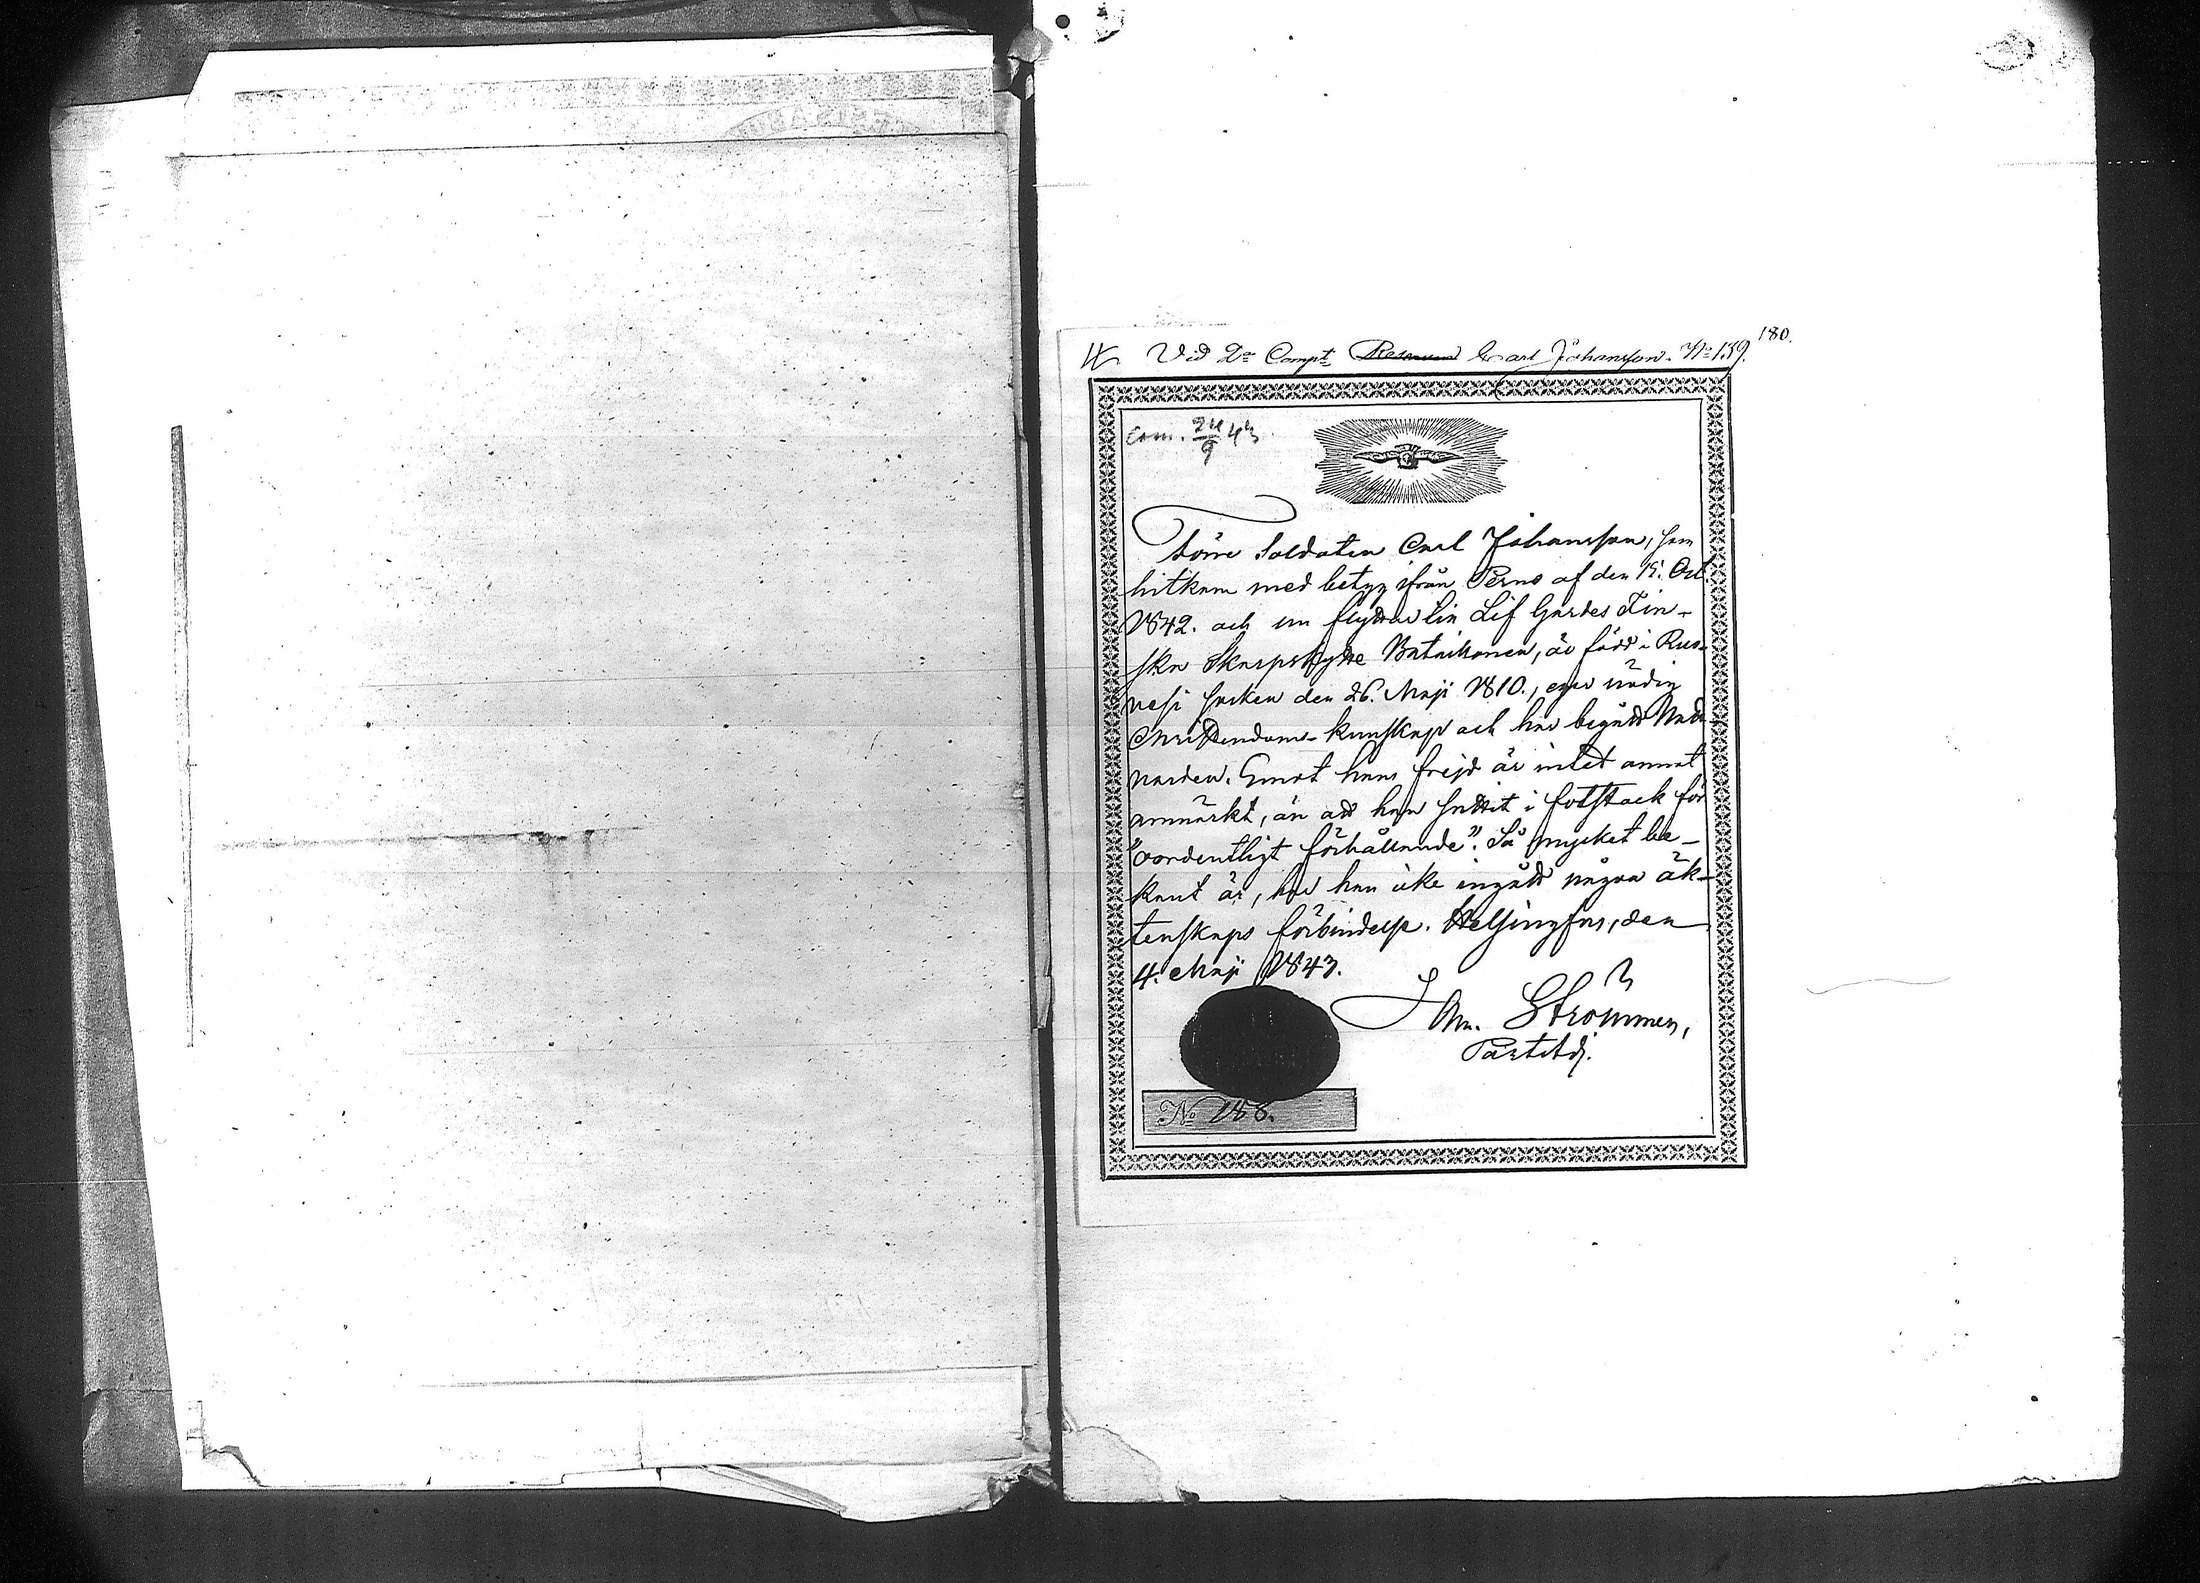 180.
Vid 2a Compt Carl Johansson. No 139.
com. 24/9 43
Förre Soldaten Carl Johansson, som
hitkom med betyg ifrån Perno af den 15. Oct.
1842. och nu flyttar till Lif Gardes Fin-
ska Skarpskytte Bataillonen, är född i Kus-
nesi socken den 26. Maji 1810., eger nödig
Christendoms-kunskap och har begått Natt-
varden. Emot hans frejd är intet annat
anmärkt, än att han suttit i fotstock för
"oordentligt förhållande". Så mycket be-
kant är, har han icke ingått någon äk-
tenskaps förbindelse. Helsingfors, den
4. Maji 1843.
Strömmer,
Past.Adj.
No 188.